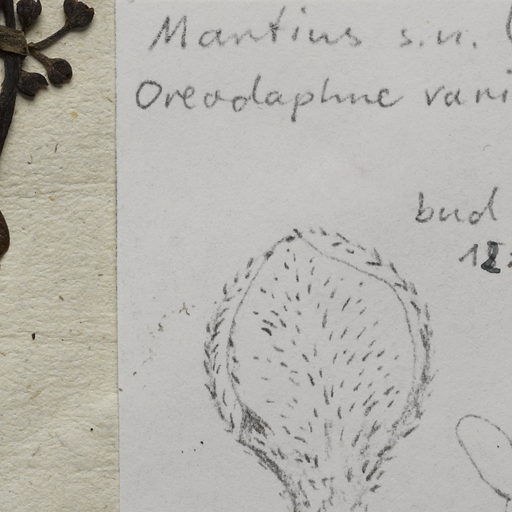 Martius s.n. (
Oreodaphne vari
bud
12x